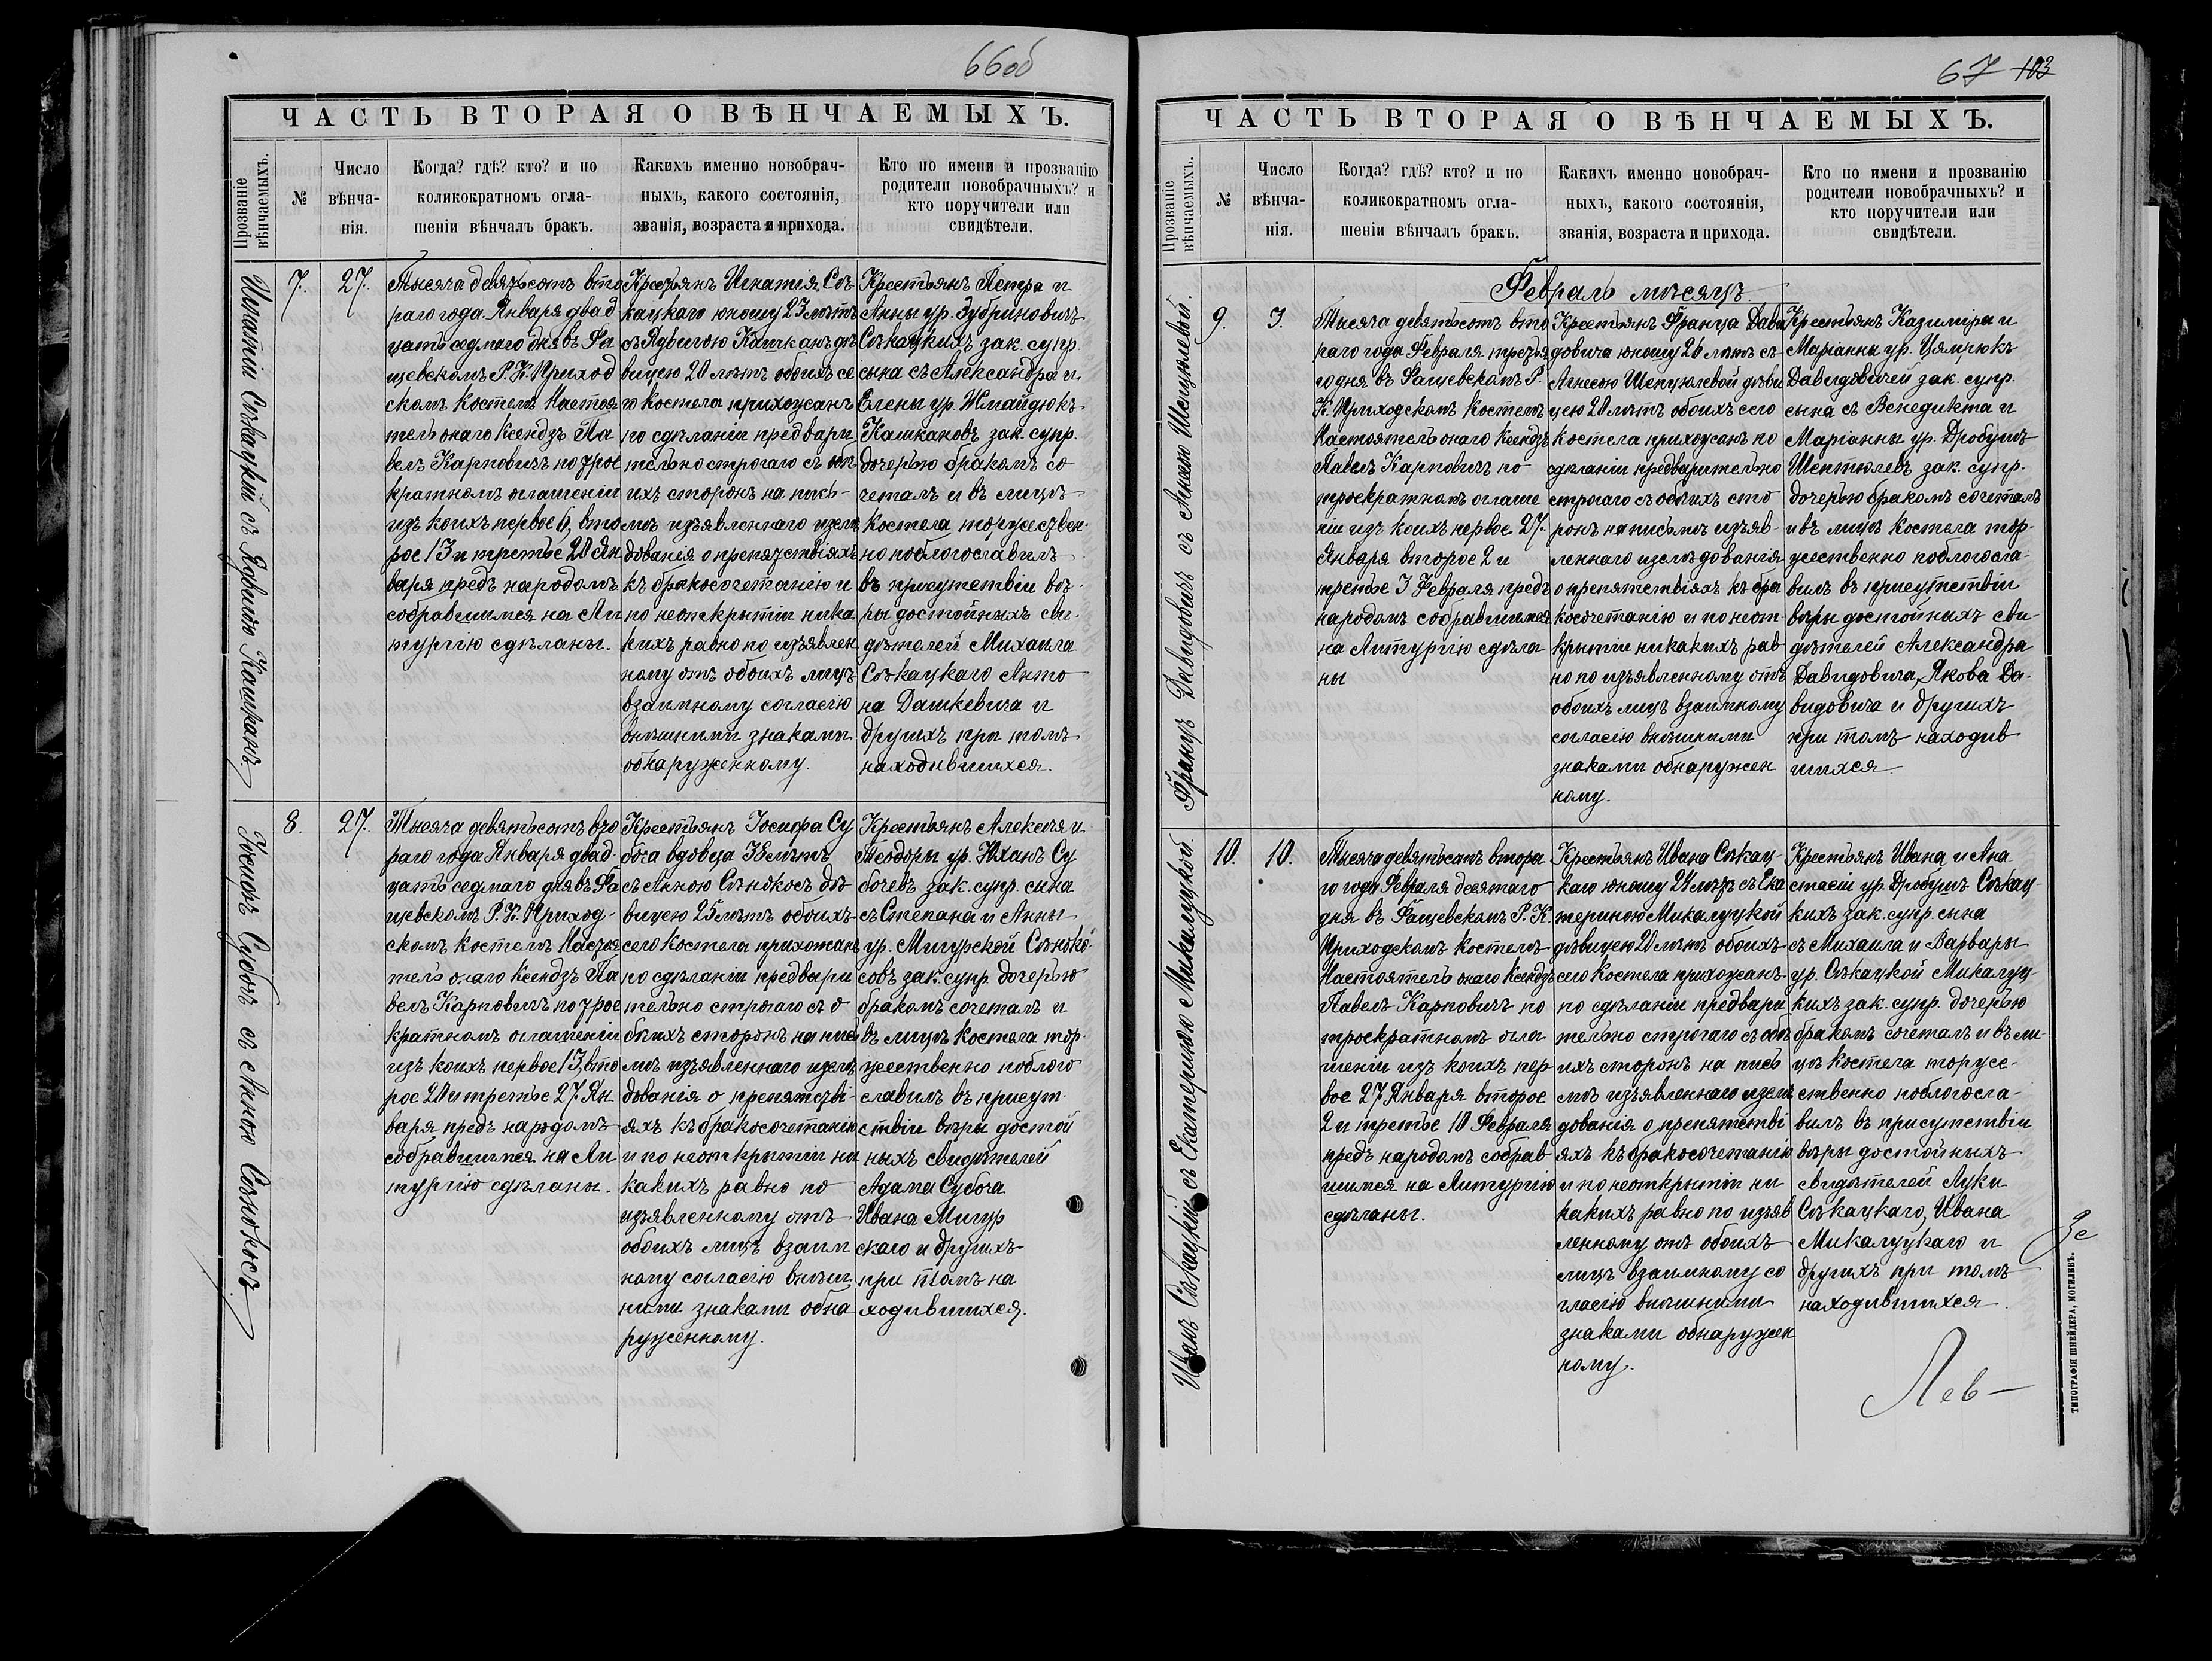 66об
ЧАСТЬ ВТОРАЯ О ВѢНЧАЕМЫХЪ.
Прозваніе вѣнчаемыхъ.
№
Число
вѣнча-
нія.
Когда? гдѣ? кто? и по
коликократномъ огла-
шеніи вѣнчалъ бракъ.
Какихъ именно новобрач-
ныхъ, какого состоянія,
званія, возраста и прихода.
Кто по имени и прозванію
родители новобрачныхъ? и
кто поручители или
свидѣтели.
Игнатій Сѣкацкій съ Ядвигою Кашканъ
7.
27.
Тысяча девятьсотъ вто
раго года Января двад
цать седмаго дня въ Фа
щевскомъ Р. К. Приход
скомъ костелѣ Настоя
тель онаго Ксендзъ Па
велъ Карповичъ по трое
кратномъ оглашеніи
изъ коихъ первое 6, вто
рое 13 и третье 20 Ян
варя предъ народомъ
собравшимся на Ли
тургію сдѣланы.
Крестьянъ Игнатія Сѣ
кацкаго юношу 23 лѣтъ
съ Ядвигою Кашканъ дѣ
вицею 20 лѣтъ обоихъ се
го костела прихожанъ
по сдѣланіи предвари
тельно строгаго съ обо
ихъ сторонъ на пись-
мѣ изъявленнаго изслѣ
дованія о препятствіяхъ
къ бракосочетанію и
по неоткрытіи ника
кихъ равно по изъявлен
ному отъ обоихъ лицъ
взаимному согласію
внѣшними знаками
обнаруженному.
Крестьянъ Петра и
Анны ур. Зубриновичъ
Сѣкацкихъ зак. супр.
сына съ Александра и
Елены ур. Жмайдюкъ
Кашкановъ зак. супр.
дочерью бракомъ со
четалъ и въ лицѣ
Костела торжествен-
но поблагославилъ
въ присутствіи вѣ-
ры достойныхъ сви-
дѣтелей Михаила
Сѣкацкаго Анто
на Дашкевича и
другихъ при томъ
находившихся.
Іосифъ Субочъ съ Анною Сѣнокосъ
8.
27.
Тысяча девятьсотъ вто
раго года Января двад
цать седмаго дня въ Фа
щевскомъ Р. К. Приход-
скомъ костелѣ Настоя
тель онаго Ксендзъ Па
велъ Карповичъ по трое
кратномъ оглашеніи
изъ коихъ первое 13, вто
рое 20 и третье 27 Ян
варя предъ народомъ
собравшимся на Ли
тургію сдѣланы.
Крестьянъ Іосифа Су
боча вдовца 38 лѣтъ
съ Анною Сѣнокосъ дѣ
вицею 25 лѣтъ обоихъ
сего костела прихожанъ
по сдѣланіи предвари
тельно строгаго съ о
боихъ сторонъ на пись
мѣ изъявленнаго изслѣ
дованія о препятстві-
яхъ къ бракосочетанію
и по неоткрытіи ни
какихъ равно по
изъявленному отъ
обоихъ лицъ взаим
ному согласію внѣш
ними знаками обна
руженному.
Крестьянъ Алексѣя и
Теодоры ур. Юханъ Су
бочевъ зак. супр. сына
съ Степана и Анны
ур. Мигурской Сѣноко-
совъ зак. супр. дочерью
бракомъ сочеталъ и
въ лицѣ костела тор-
жественно поблаго
славилъ въ присут-
ствіи вѣры достой
ныхъ свидѣтелей
Адама Субоча
Ивана Мигур
скаго и другихъ
при томъ на
ходившихся.
67 103
ЧАСТЬ ВТОРАЯ О ВѢНЧАЕМЫХЪ.
Прозваніе вѣнчаемыхъ.
№
Число
вѣнча-
нія.
Когда? гдѣ? кто? и по
коликократномъ огла-
шеніи вѣнчалъ бракъ.
Какихъ именно новобрач-
ныхъ, какого состоянія,
званія, возраста и прихода.
Кто по имени и прозванію
родители новобрачныхъ? и
кто поручители или
свидѣтели.
Февраль мѣсяцъ
Францъ Давидовичъ съ Агнесою Шепцюлевой.
9.
3.
Тысяча девятьсотъ вто
раго года Февраля третья
го дня въ Фащевскомъ Р.
К. Приходскомъ Костелѣ
Настоятель онаго Ксендзъ
Павелъ Карповичъ по
троекратномъ оглаше
ніи изъ коихъ первое 27.
Января второе 2 и
третье 3 Февраля предъ
народомъ собравшимся
на Литургію сдѣла
ны
Крестьянъ Франца Дави
довича юношу 26 лѣтъ съ
Агнесою Шепцюлевой дѣви
цею 20 лѣтъ обоихъ сего
Костела прихожанъ по
сдѣланіи предварительно
строгаго съ обоихъ сто
ронъ на письмѣ изъяв-
леннаго изслѣдованія
о препятствіяхъ къ бра
косочетанію и по неот-
крытіи никакихъ рав
но по изъявленному отъ
обоихъ лицъ взаимному
согласію внѣшними
знаками обнаружен
ному.
Крестьянъ Казимира и
Маріанны ур. Цямрюкъ
Давидовичей зак. супр.
сына съ Венедикта и
Маріанны ур. Дробушъ
Шептюлевъ зак. супр.
дочерью бракомъ сочеталъ
и въ лицѣ костела тор-
жественно поблагосла-
вилъ въ присутствіи
вѣры достойныхъ сви-
дѣтелей Александра
Давидовича, Якова Да-
видовича и другихъ
при томъ находив
шихся
Иванъ Сѣкацкій съ Екатериною Микалуцкой.
10.
10.
Тысяча девятьсотъ втора
го года Февраля десятаго
дня въ Фащевскомъ Р. К.
Приходскомъ костелѣ
Настоятель онаго Ксендзъ
Павелъ Карповичъ по
троекратномъ огла
шеніи изъ коихъ пер
вое 27 Января второе
2 и третье 10 Февраля
предъ народомъ собрав
шимся на Литургію
сдѣланы.
Крестьянъ Ивана Сѣкац-
каго юношу 21 лѣтъ съ Ека
териною Микалуцкой
дѣвицею 20 лѣтъ обоихъ
сего Костела прихожанъ
по сдѣланіи предвари
тельно строгаго съ обо
ихъ сторонъ на пись
мѣ изъявленнаго изслѣ
дованія о препятстві
яхъ къ бракосочетанію
и по неоткрытіи ни
какихъ равно по изъяв
ленному отъ обоихъ
лицъ взаимному со
гласію внѣшними
знаками обнаружен
ному.
Крестьянъ Ивана и Ана
стасіи ур. Дробушъ Сѣкац-
кихъ зак. супр. сына
съ Михаила и Варвары
ур. Сѣкацкой Микалуц-
кихъ зак. супр. дочерью
бракомъ сочеталъ и въ ли-
цѣ костела торже-
ственно поблагосла-
вилъ въ присутствіи
вѣры достойныхъ
свидѣтелей Луки
Сѣкацкаго, Ивана
Микалуцкаго и
другихъ при томъ
находившихся.
Лев-
ТИПОГРАФІЯ ШНЕЙДЕРА, МОГИЛЕВЪ.